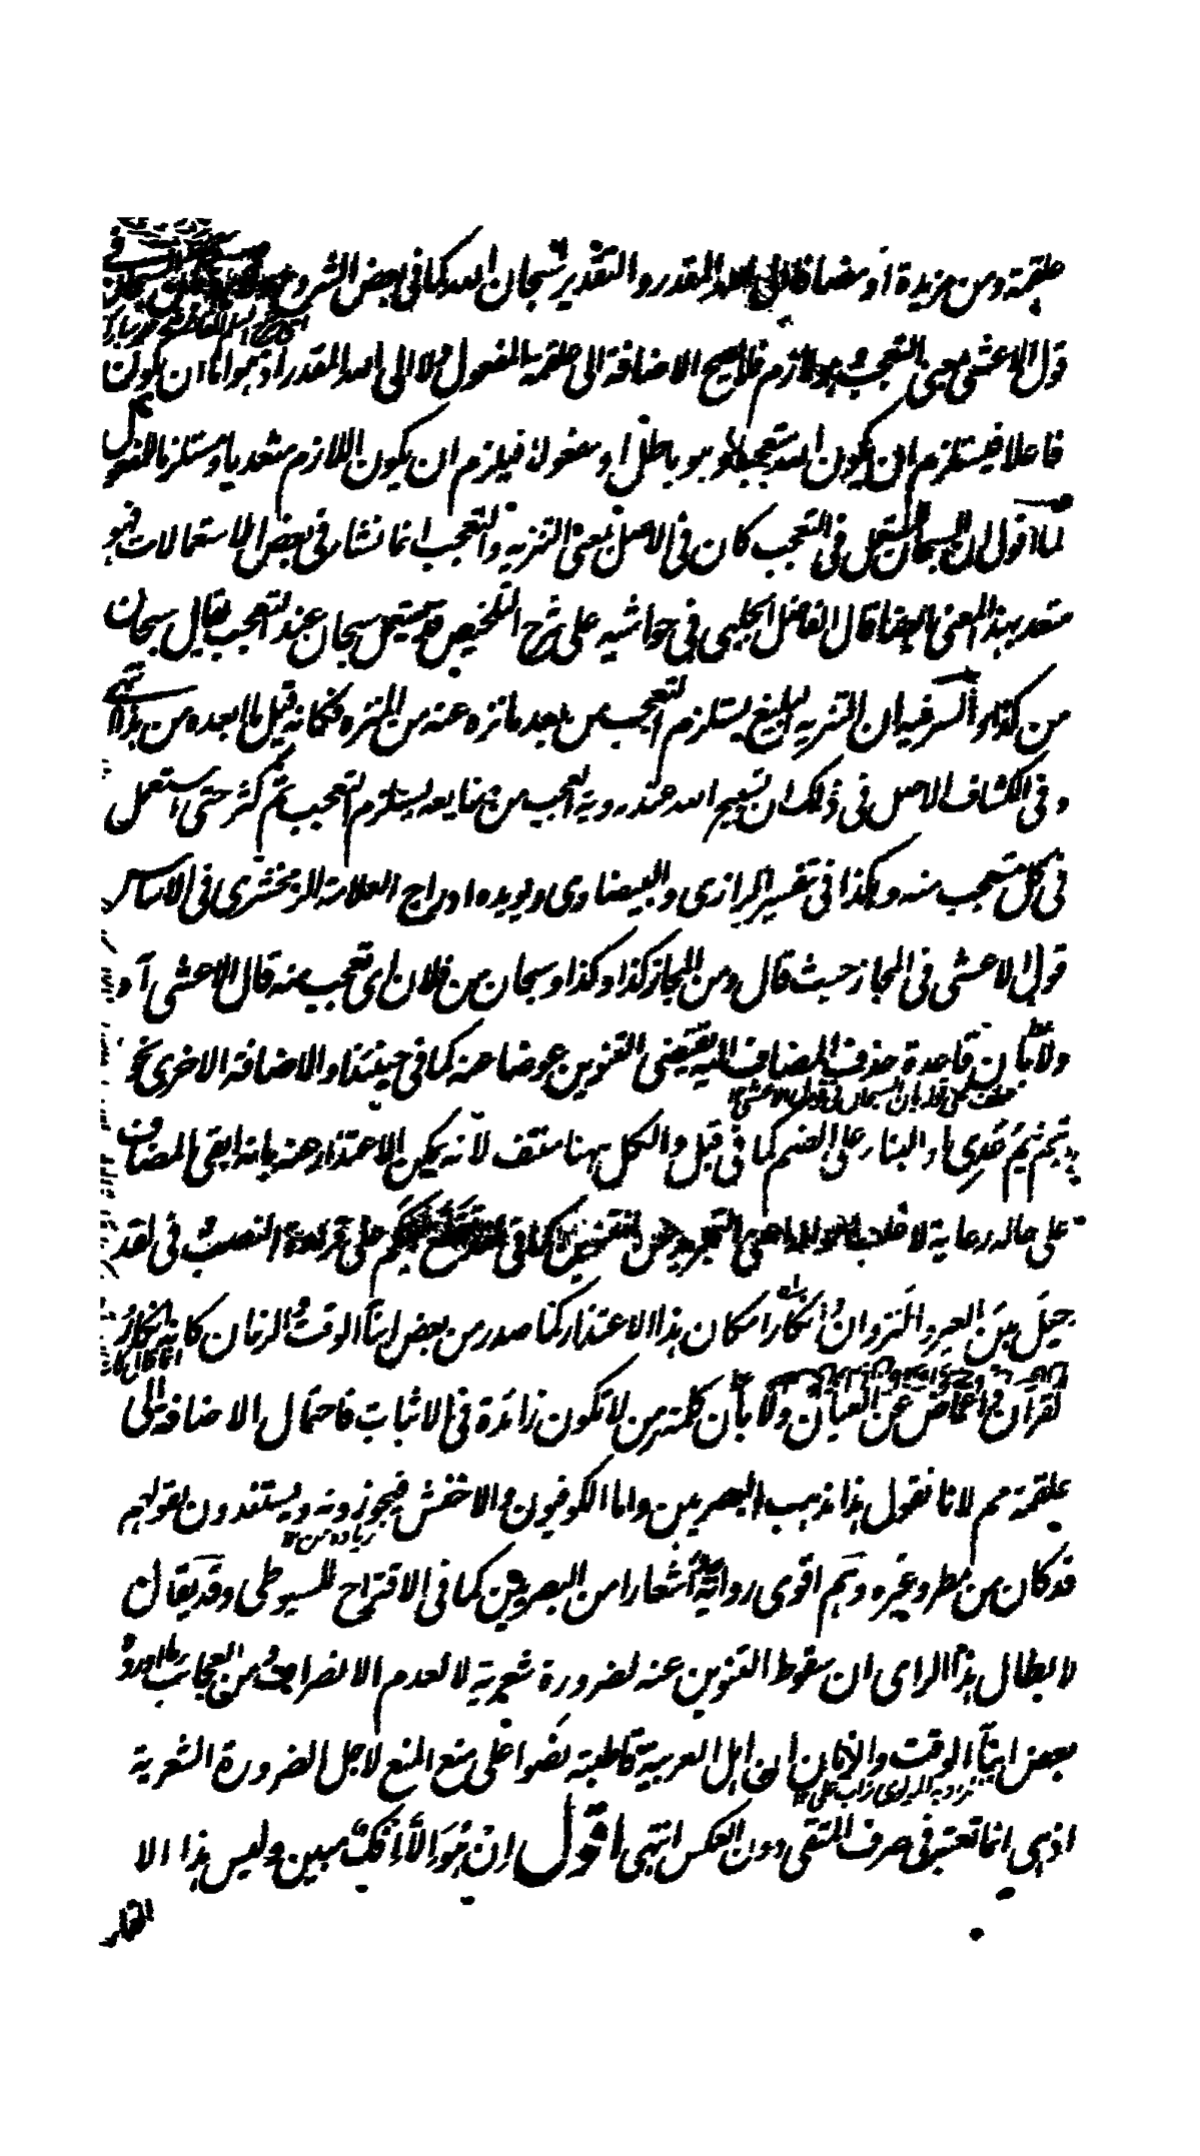 علقمة ومن مزيدة او مضافا الى الله المقدر والتقدير سبحان الله كما في بعض الشروح
قول الاعشى بمعنى التعجب وهو لازم فلا يصح الاضافة الى علقمة بالمفعول ولا الى الله المقدر اذ هو اما ان يكون
فاعلا فيستلزم ان يكون الله متعجبا وهو باطل او مفعولا فيلزم ان يكون اللازم متعديا ومستلزما للمفعول
لما اقول ان السبحان المستعمل في التعجب كان في الاصل بمعنى التنزيه والتعجب انما نشأ في بعض الاستعمالات فهو
متعد بهذا المعنى ايضا قال الفاضل الچلپى في حواشيه على شرح التلخيص قد يستعمل سبحان عند التعجب فيقال سبحان
من كذا والسر فيه ان التنزيه البليغ يستلزم التعجب من بعد ما نزه عنه من المنزه فكانه قيل ما ابعده من هذا انتهى
وفي الكشاف الاصل في ذلك ان تسبيح الله عند روية العجيب من صنايعه يستلزم التعجب ثم كثر حتى استعمل
في كل متعجب منه وهكذا في تفسير الرازى والبيضاوى ويويده ادراج العلامة الزمخشرى في الاساس
قول الاعشى في المجاز حيث قال ومن المجاز كذا وكذا وسبحان من فلان اى تعجب منه قال الاعشى آه
ولا بان قاعدة حذف المضاف اليه يقتضى التنوين عوضا عنه كما في حينئذ او الاضافة الاخرى نحو
عطف على قوله بان السبحان في قول الاعشى ١٢
يا تيم تيم عدى او البناء على الضم كما في قبل والكل ههنا منتف لانه يمكن الاعتذار عنه بانه ابقى المضاف
على حاله رعاية لاغلب احواله اعنى التجرد عن التنوين كما في على قراءة النصب في لقد
حيل بين العير والنزوان وانكار امكان هذا الاعتذار كما صدر من بعض ابناء الوقت والزمان كانه انكار
لقرآن و اغماض عن العيان ولا بان كلمة من لا تكون زائدة في الاثبات فاحتمال الاضافة الى
علقمة مم لانا نقول هذا مذهب البصريين واما الكوفيون والاخفش فيجوزونه ويستندون بقولهم
زيادة من ١٢
قد كان من مطر وغيره وهم اقوى رواية اشعارا من البصريين كما في الاقتراح للسيوطى وقد يقال
لابطال هذا الراى ان سقوط التنوين عنه لضرورة شعرية لا لعدم الانصراف ومن العجائب ما اورده
بعض ابناء الوقت والزمان ان اهل العربية قاطبة نصوا على منع المنع لاجل الضرورة الشعرية
تردية المولوى تراب على ١٢
اذ هى انما تعتبر في صرف المتقى دون العكس انتهى اقول ان هو الا افك مبين وليس هذا الا